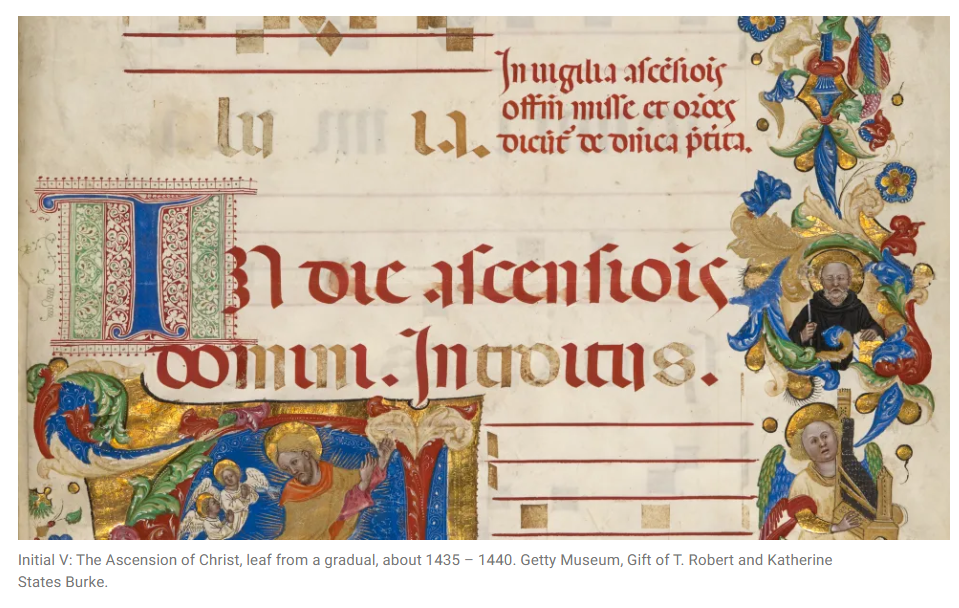 In uigilia ascēsiois
offm̄ misse et orōes
lu
dicūt de dn̄ica p̄tita.
IN die ascensiois
domini. Introitus.
Initial V: The Ascension of Christ, leaf from a gradual, about 1435 – 1440. Getty Museum, Gift of T. Robert and Katherine
States Burke.